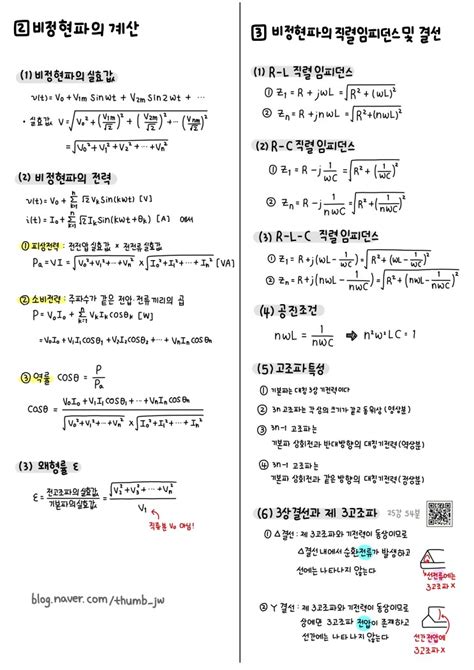 2 비정현파의 계산
(1) 비정현파의 실효값
v(t) = V₀ + V₁ₘ Sinωt + V₂ₘ Sin2ωt + ⋯
• 실효값 V = √(V₀² + (V₁ₘ/√2)² + (V₂ₘ/√2)² + ⋯ (Vₙₘ/√2)²)
= √(V₀² + V₁² + V₂² + ⋯ + Vₙ²)
(2) 비정현파의 전력
v(t) = V₀ + Σₖ₌₁ⁿ √2 Vₖ Sin(kωt) [V]
i(t) = I₀ + Σₖ₌₁ⁿ √2 Iₖ Sin(kωt + θₖ) [A] 에서
① 피상전력 : 전전압실효값 × 전전류실효값
Pa = VI = √(V₀² + V₁² + ⋯ + Vₙ²) × √(I₀² + I₁² + ⋯ + Iₙ²) [VA]
② 소비전력 : 주파수가 같은 전압·전류끼리의 곱
P = V₀I₀ + Σₖ₌₁ⁿ VₖIₖ cosθₖ [W]
= V₀I₀ + V₁I₁ COSθ₁ + V₂I₂ COSθ₂ + ⋯ + VₙIₙ COSθₙ
③ 역률 COSθ = P/Pa
COSθ = (V₀I₀ + V₁I₁ COSθ₁ + ⋯ + VₙIₙ COSθₙ) / (√(V₀² + V₁² + ⋯ + Vₙ²) × √(I₀² + I₁² + ⋯ + Iₙ²))
(3) 왜형률 ε
ε = 전고조파의 실효값/기본파의 실효값 = √(V₂² + V₃² + ⋯ + Vₙ²)/V₁
직류분 V₀ 아님!
blog.naver.com/thumb_jw
3 비정현파의 직렬임피던스 및 결선
(1) R-L 직렬 임피던스
① Z₁ = R + jωL = √(R² + (ωL)²)
② Zₙ = R + jnωL = √(R² + (nωL)²)
(2) R-C 직렬 임피던스
① Z₁ = R - j 1/ωC = √(R² + (1/ωC)²)
② Zₙ = R - j 1/nωC = √(R² + (1/nωC)²)
(3) R-L-C 직렬 임피던스
① Z₁ = R + j(ωL - 1/ωC) = √(R² + (ωL - 1/ωC)²)
② Zₙ = R + j(nωL - 1/nωC) = √(R² + (nωL - 1/nωC)²)
(4) 공진조건
nωL = 1/nωC ➡ n²ω²LC = 1
(5) 고조파 특성
① 기본파는 대칭 3상 기전력이다
② 3n 고조파는 각 상의 크기가 같고 동위상 (영상분)
③ 3n-1 고조파는
기본파 상회전과 반대방향의 대칭기전력 (역상분)
④ 3n-1 고조파는
기본파 상회전과 같은 방향의 대칭기전력 (정상분)
(6) 3상 결선과 제 3고조파 25강 54분
① △결선 : 제 3고조파의 기전력이 동상이므로
△결선 내에서 순환전류가 발생하고
선에는 나타나지 않는다
선전류에는
3고조파 X
② Y 결선 : 제 3고조파의 기전력이 동상이므로
상에면 3고조파 전압이 존재하고
선간에는 나타나지 않는다
선간전압에
3고조파 X